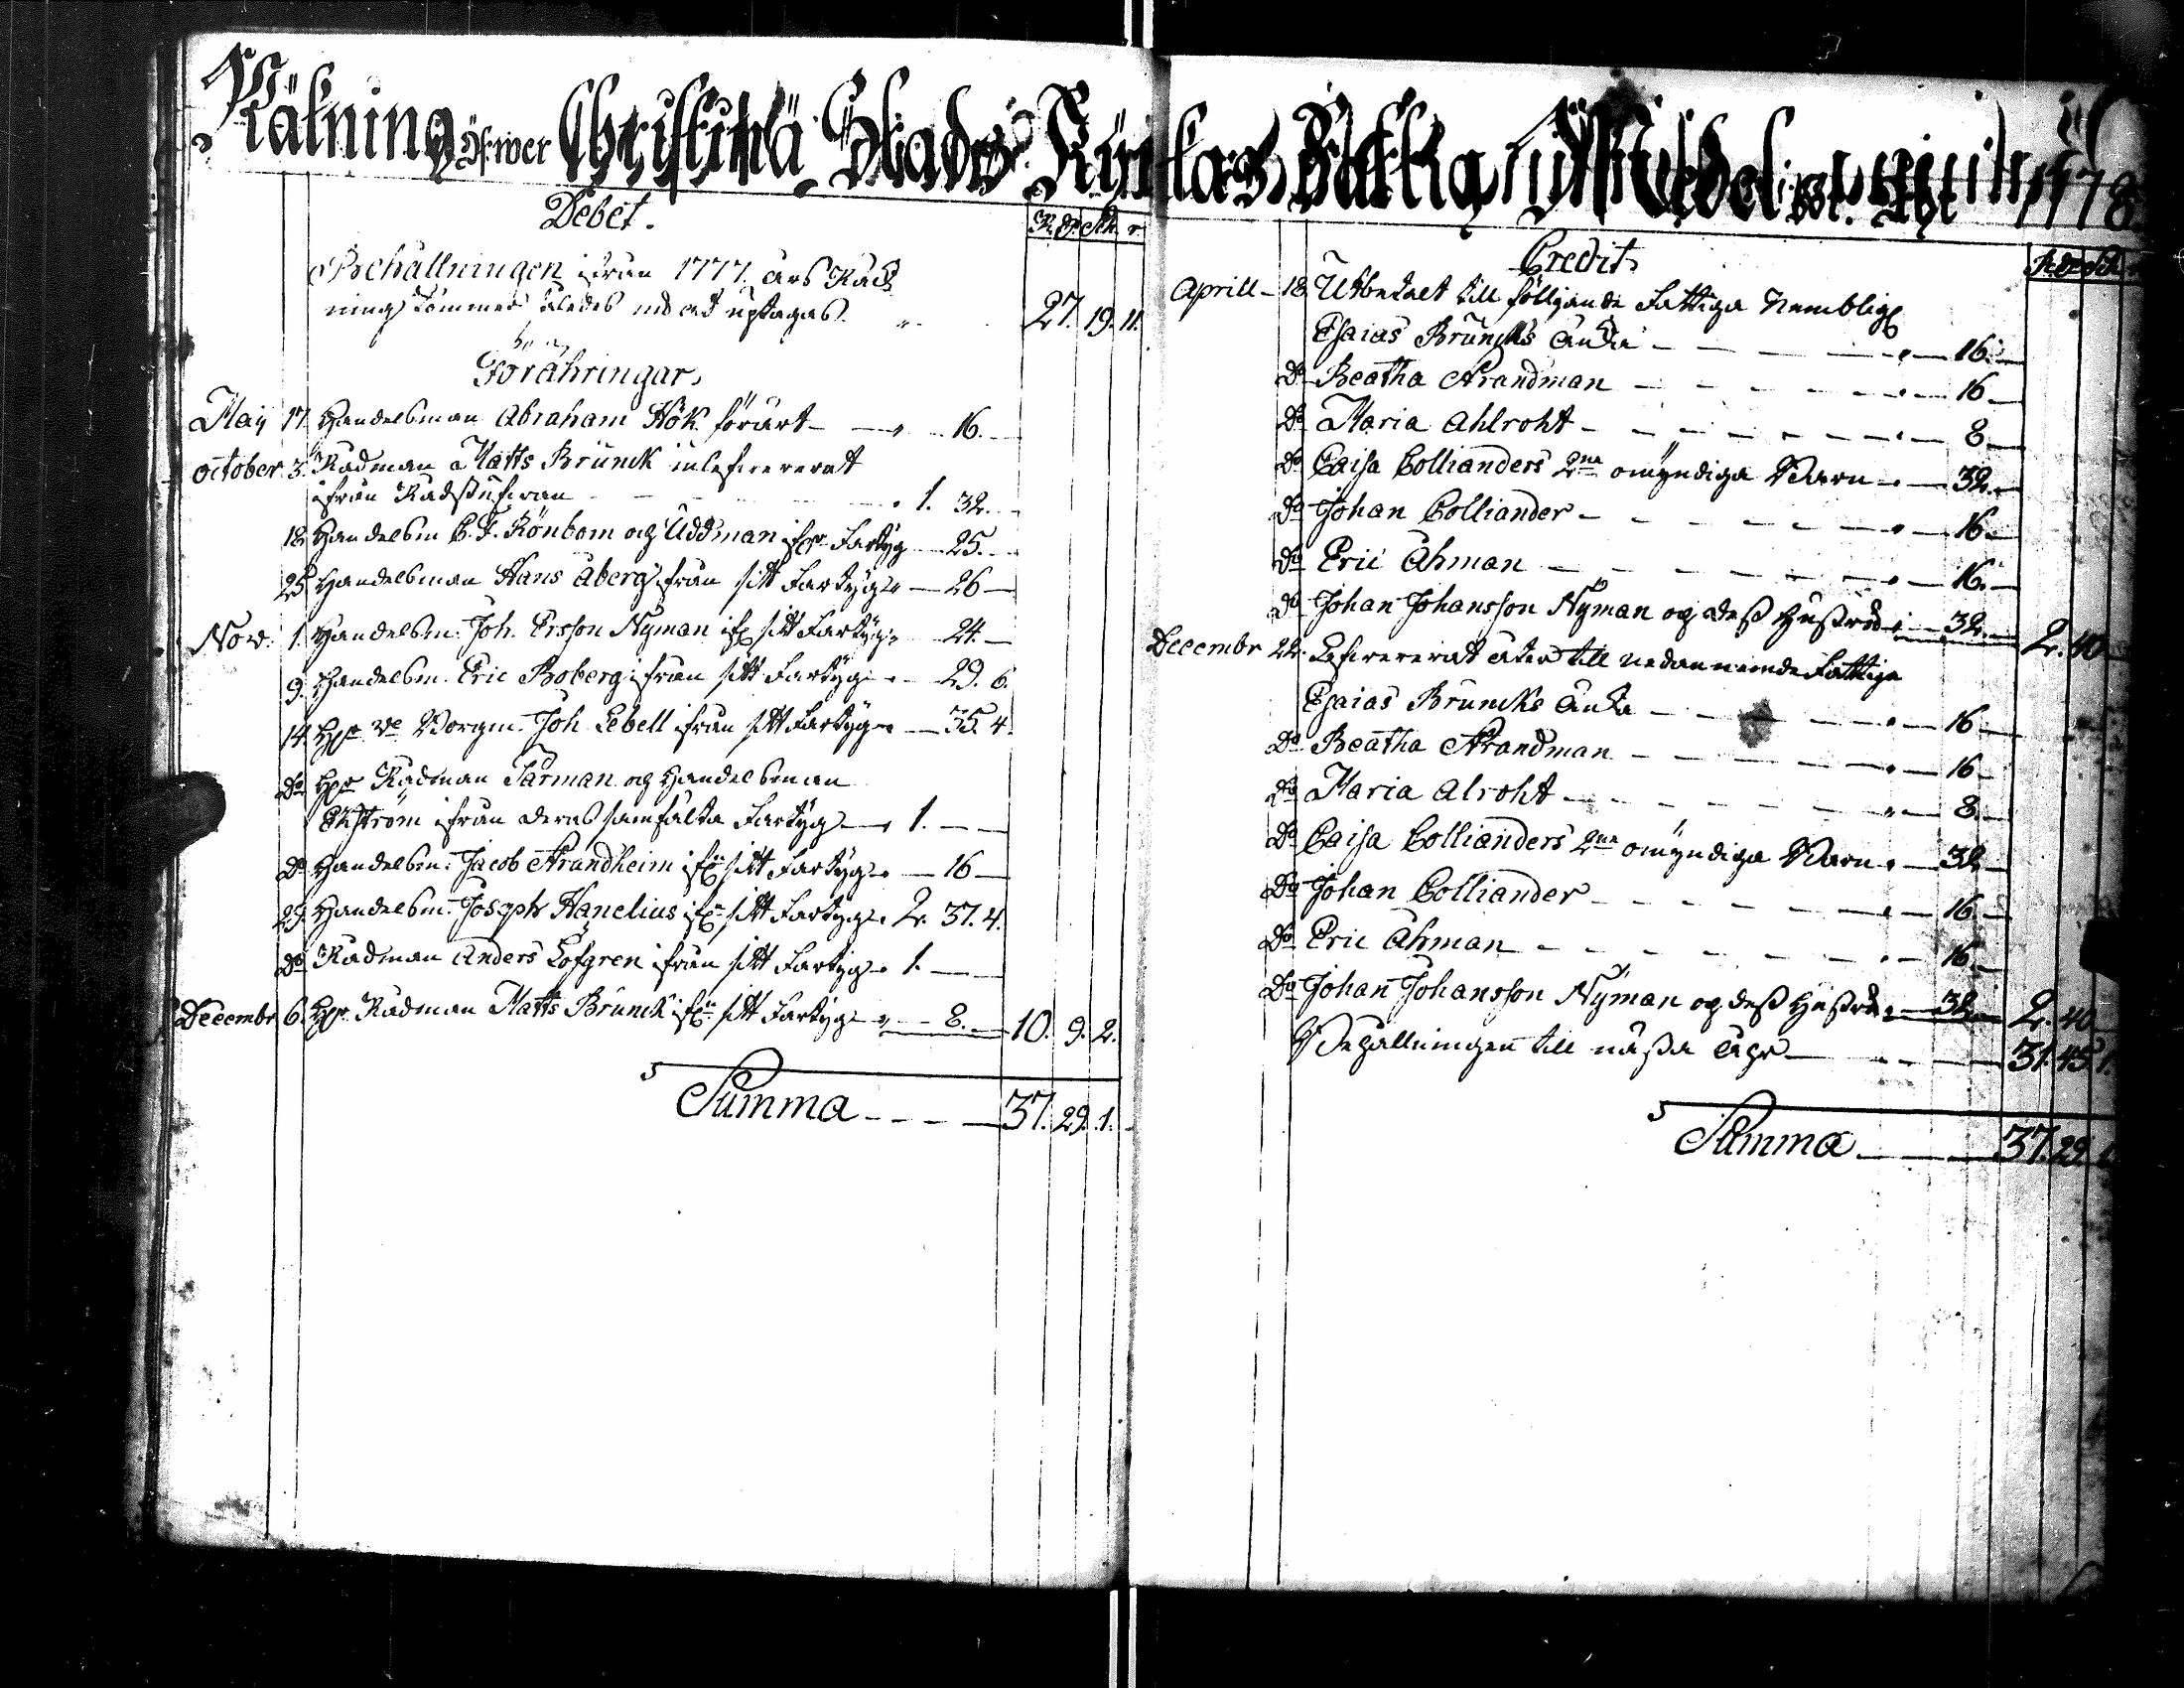 Räkning öfwer Christinä Stads Kyrkas Fattig Medel pro 1778.
Debet.
R.dr. Sch. r.
Behållningen ifrån 1777 års Räck
ning kommer således nu at uptagas. 27. 19. 11.
Förähringar,
Maij 17. Handelsman Abraham Hök förärt — 16. —
October 3. Rådman Matts Brunck inlefwererat
ifrån Rådstufwan — 1. 32. —
18. Handelsm C. F. Rönbom og Uddman ifr Fartyg — 25. —
25 Handelsman Hans Åberg ifrån sitt Fartyg — 26 —
Nov. 1. Handelsm: Joh. Ersson Nyman ifr sitt Fartyg — 24 —
9. Handelsm. Eric Boberg ifrån sitt Fartyg — 29. 6.
14. Hr Borgm. Joh Lebell ifrån sitt Fartyg — 35. 4.
Do Hr Rådman Särman og Handelsman
Ekström ifrån deras samfälta Fartyg — 1. — —
Do Handelsm: Jacob Strandheim ifr sitt Fartyg — 16 —
29. Handelsm: Joseph Hanelius ifr sitt Fartyg 2. 37. 4.
Do Rådman Anders Löfgren ifrån sitt Fartyg 1. — —
Decembr 6. Hr Rådman Matts Brunck ifr sitt Fartyg — 8. — 10. 9. 2.
Summa — — — 37. 29. 1.
Credit
R.dr Sch
Aprill — 18. Utbetalt till föllgande Fattiga Nembligen
Esaias Bruncks Änka — 16. —
Do Beatha Strandman — 16 —
Do Maria Ahlroht — 8 —
Do Caisa Collianders 2ne omyndiga Barn — 32. —
Do Johan Colliander — 16 —
Do Eric Åhman — 16. —
Do Johan Johansson Nyman og dess Hustru — 32. — 2. 40
Decembr 22. Lefwererat åter till nedannemde Fattiga
Esaias Bruncks Änka — 16 —
Do Beatha Strandman — 16 —
Do Maria Alroht — 8 —
Do Caisa Collianders 2ne omyndiga Barn — 32 —
Do Johan Colliander — 16 —
Do Eric Åhman — 16 —
Do Johan Johansson Nyman og dess Hustru — 32 — 2. 40
Behållningen till nästa Åhr — 31. 45. 1.
Summa — — 37. 29. 1